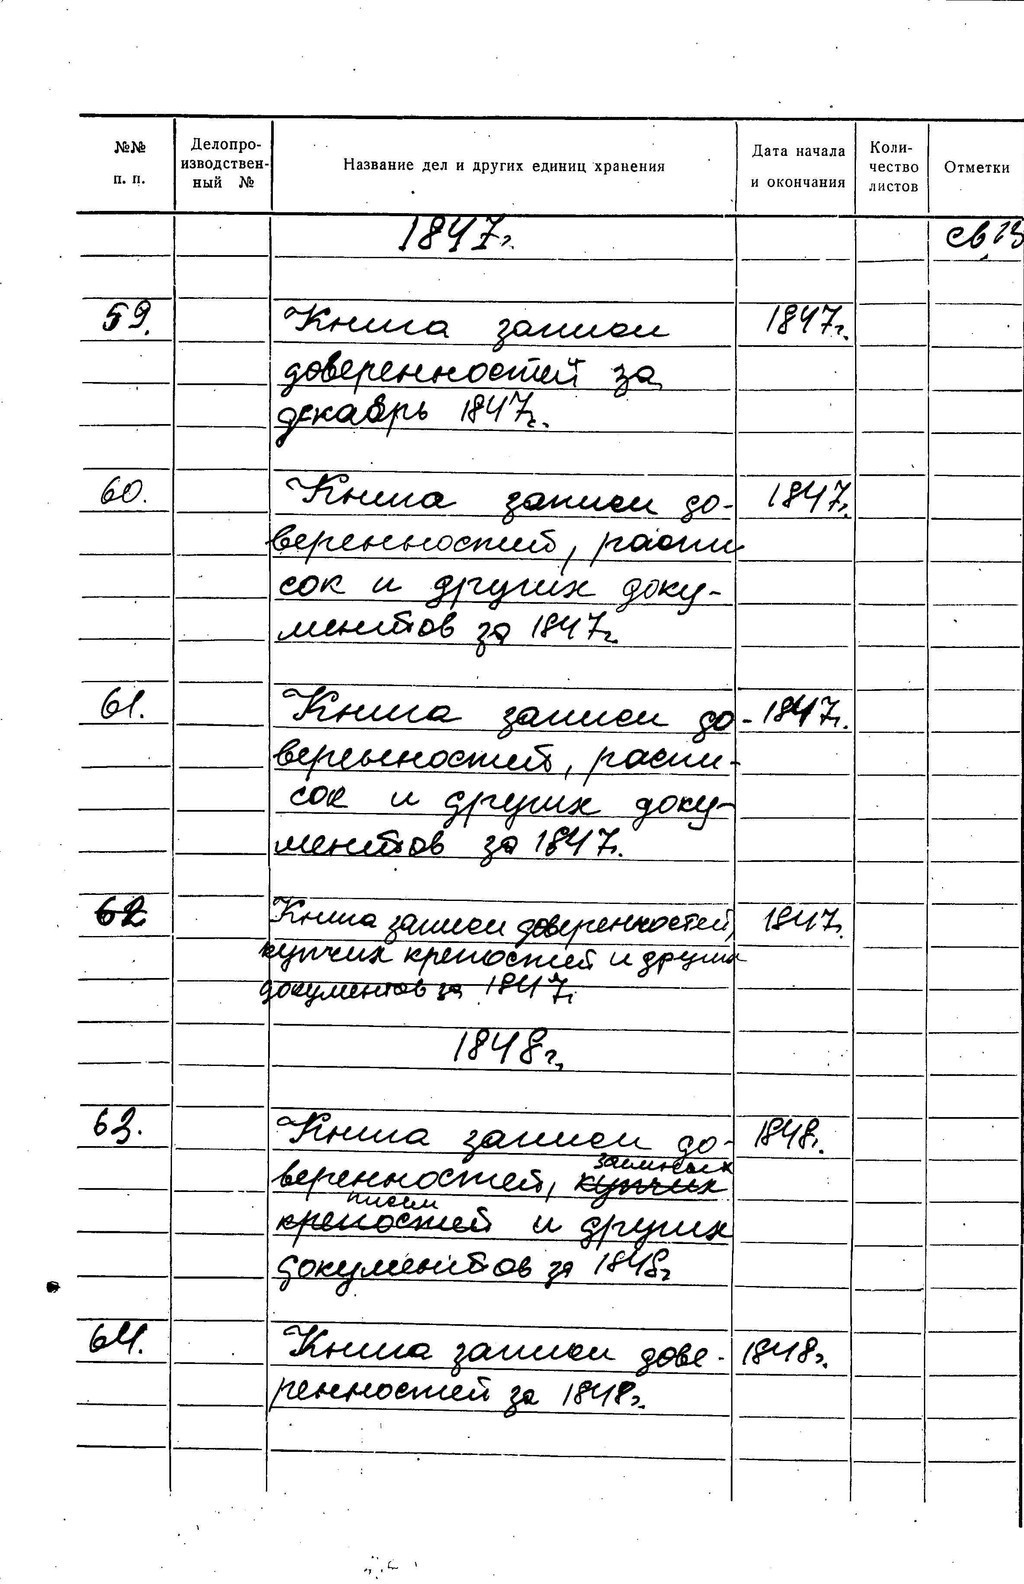 №№ п. п.
Делопро-
изводствен-
ный №
Название дел и других единиц хранения
Дата начала
и окончания
Коли-
чество
листов
Отметки
1847г.
св 13
59. Книга записи 1847г.
доверенностей за
декабрь 1847г.
60. Книга записи до- 1847г.
веренностей, распи
сок и других доку-
ментов за 1847г.
61. Книга записи до- 1847г.
веренностей, распи-
сок и других доку-
ментов за 1847г.
62 Книга записи доверенностей, 1847г.
купчих крепостей и других
документов за 1847г.
1848г.
63. Книга записи до- 1848г.
заемных
веренностей, купчих
писем
крепостей и других
документов за 1848г.
64. Книга записи дове- 1848г.
ренностей за 1848г.